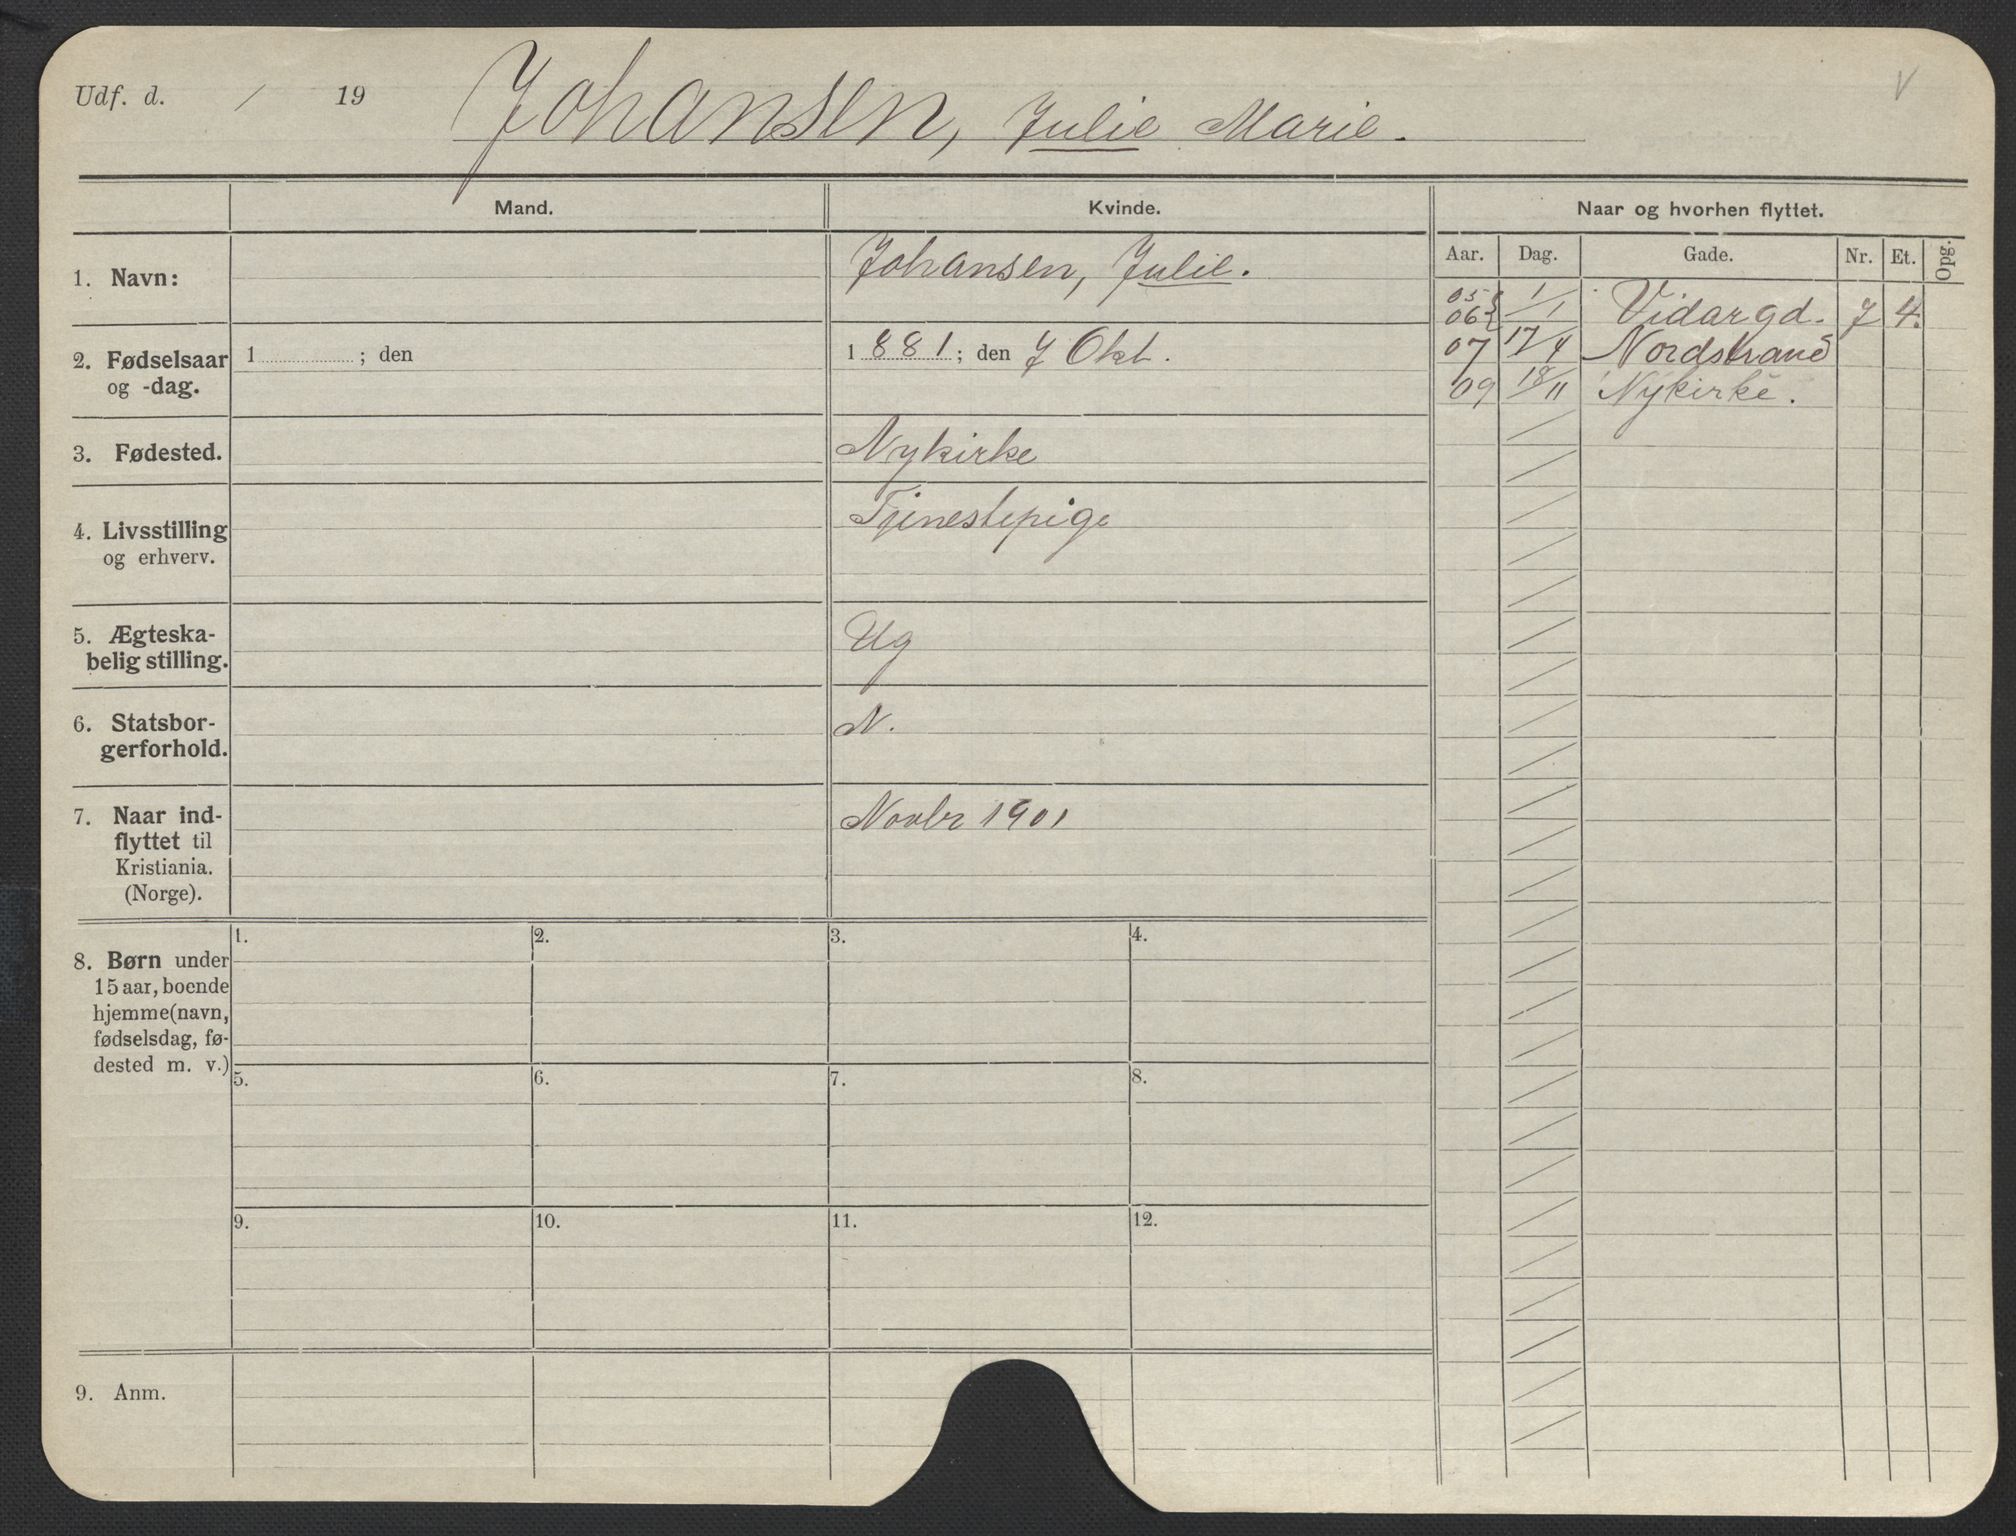 Udf. d. / 19
Johansen, Julie Marie.
V
Mand.
Kvinde.
Naar og hvorhen flyttet.
Aar. Dag. Gade. Nr. Et. Opg.
1. Navn:
Johansen, Julie.
2. Fødselsaar
og -dag.
1 ; den
1881; den 7 Okt.
3. Fødested.
Nykirke
4. Livsstilling
og erhverv.
Tjenestepige
5. Ægteska-
belig stilling.
Ug
6. Statsbor-
gerforhold.
N.
7. Naar ind-
flyttet til
Kristiania.
(Norge).
Novbr 1901
05
06 1/1 Vidargd. 7 4.
07 17/4 Nordstrand
09 18/11 Nykirke.
8. Børn under
15 aar, boende
hjemme (navn,
fødselsdag, fø-
dested m. v.)
1. 2. 3. 4.
5. 6. 7. 8.
9. 10. 11. 12.
9. Anm.